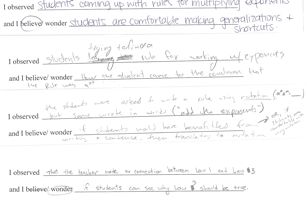 I observed students coming up with rules for multiplying exponents
and I believe/ wonder students are comfortable making generalizations +
shortcuts.
trying to find a
I observed students rule for working w/ exponents
and I believe/ wonder they students came to the conclusion that
the rule was
the students were asked to write a rule using notation
I observed but some wrote in words ("add the exponents")
and I believe/ wonder if students would have benefitted from
writing a sentence, then translate to notation
I observed that the teacher made the connection between Law 1 and Law 3
and I believe/ wonder if students can see why law should be true.